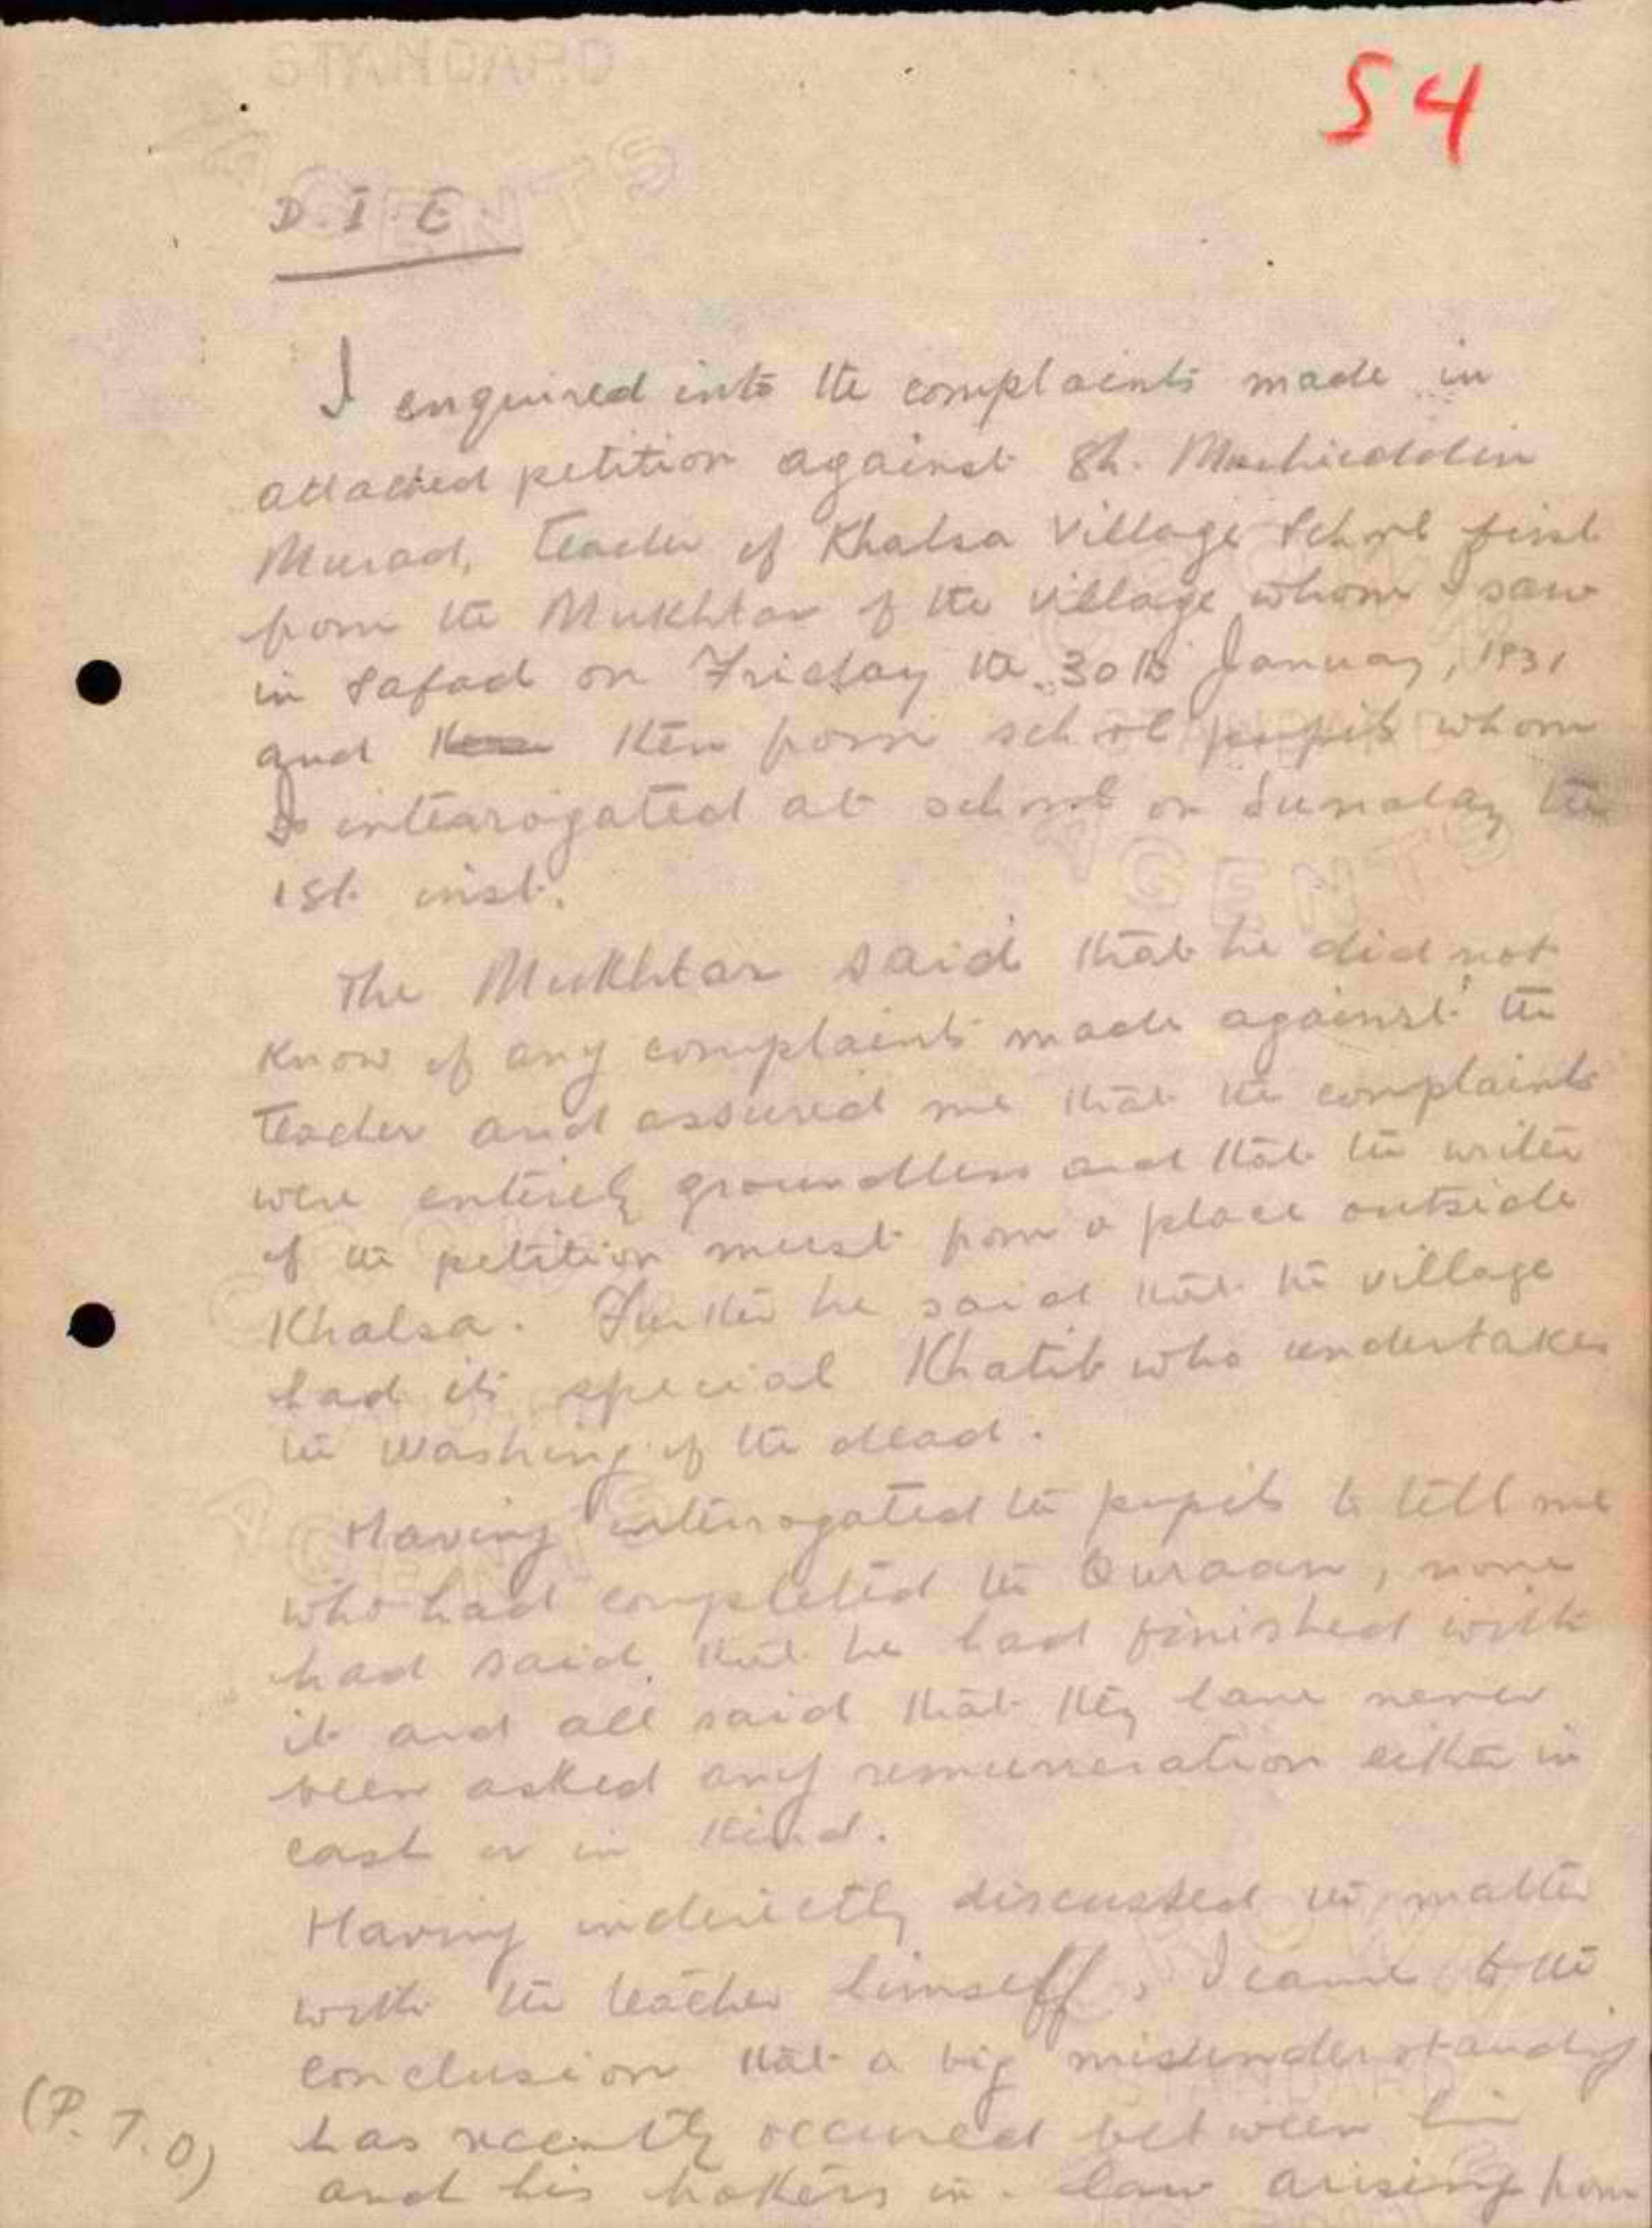 STANDARD
54
AGENTS
D. I. E.
I enquired into the complaints made in
attached petition against Sh. Muhieddin
Murad, teacher of Khalsa Village School first
from the Mukhtar of the village whom I saw
in Safad on Friday the 30th January, 1931
and then from school pupils whom
I intearogated at school on Sunday the
1st. inst.
AGENTS
The Mukhtar said that he did not
know of any complaints made against the
teacher and assured me that the complaints
were entirely groundless and that the writer
of the petition must from a place outside
Khalsa. Further he said that the village
had its special Khatib who undertakes
the washing of the dead.
AGENTS
Having interrogated the pupils to tell me
who had completed the Quraan, none
had said that he had finished with
it and all said that they have never
been asked any remunneration either in
cash or in kind.
Having indirectly discussed the matter
with the teacher himself, I came to the
conclusion that a big misunderstanding
STANDARD
has recently occured between him
(P.T.O)
and his brothers in-law arising from